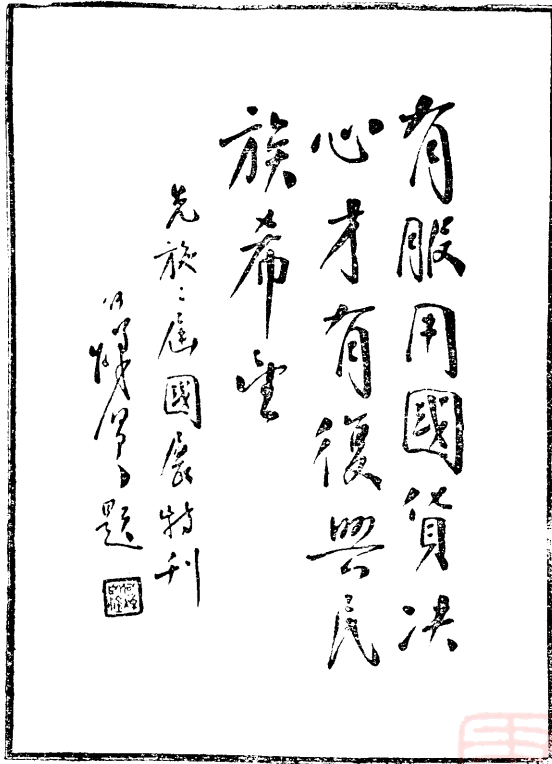 有服用國貨决
心才有復興民
族希望
先施二屆國展特刊
題